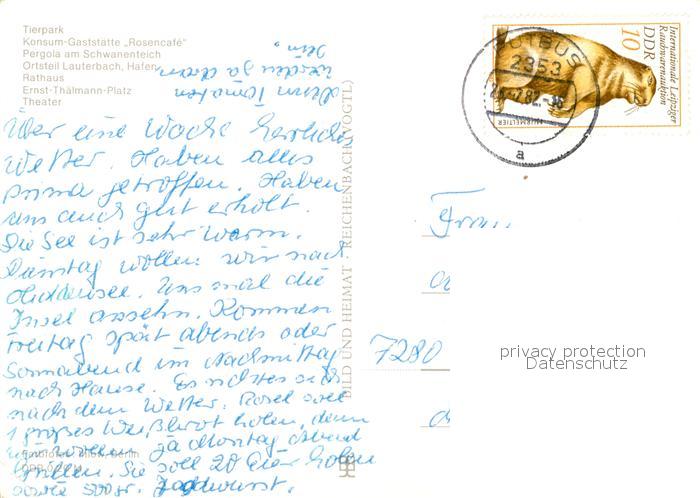 Tierpark
Konsum-Gaststätte „Rosencafé"
Pergola am Schwanenteich
Ortsteil Lauterbach, Hafen
Rathaus
Ernst-Thälmann-Platz
Theater
Über eine Woche herrliches
Wetter. Haben alles
prima getroffen. Haben
uns auch gut erholt.
Die See ist sehr warm.
Dienstag wollen wir nach
Hiddensee. Uns mal die
Insel ansehn. Kommen
Freitag spät abends oder
Sonnabend im Nachmittag
nach Hause. Es richtet sich
nach dem Wetter. Rosel soll
1 großes Weißbrot holen, denn
wir wollen ja Montag Abend
grillen. Sie soll 20 Eier holen
sowie 500 gr. Jagdwurst.
denn Tomaten
werden ja dran
sein.
BILD UND HEIMAT REICHENBACH (VOGTL)
Internationale Leipziger
Rauchwarenauktion
DDR
10
MURMELTIER
PUTBUS
2353
a
Frau
7280
privacy protection
Datenschutz